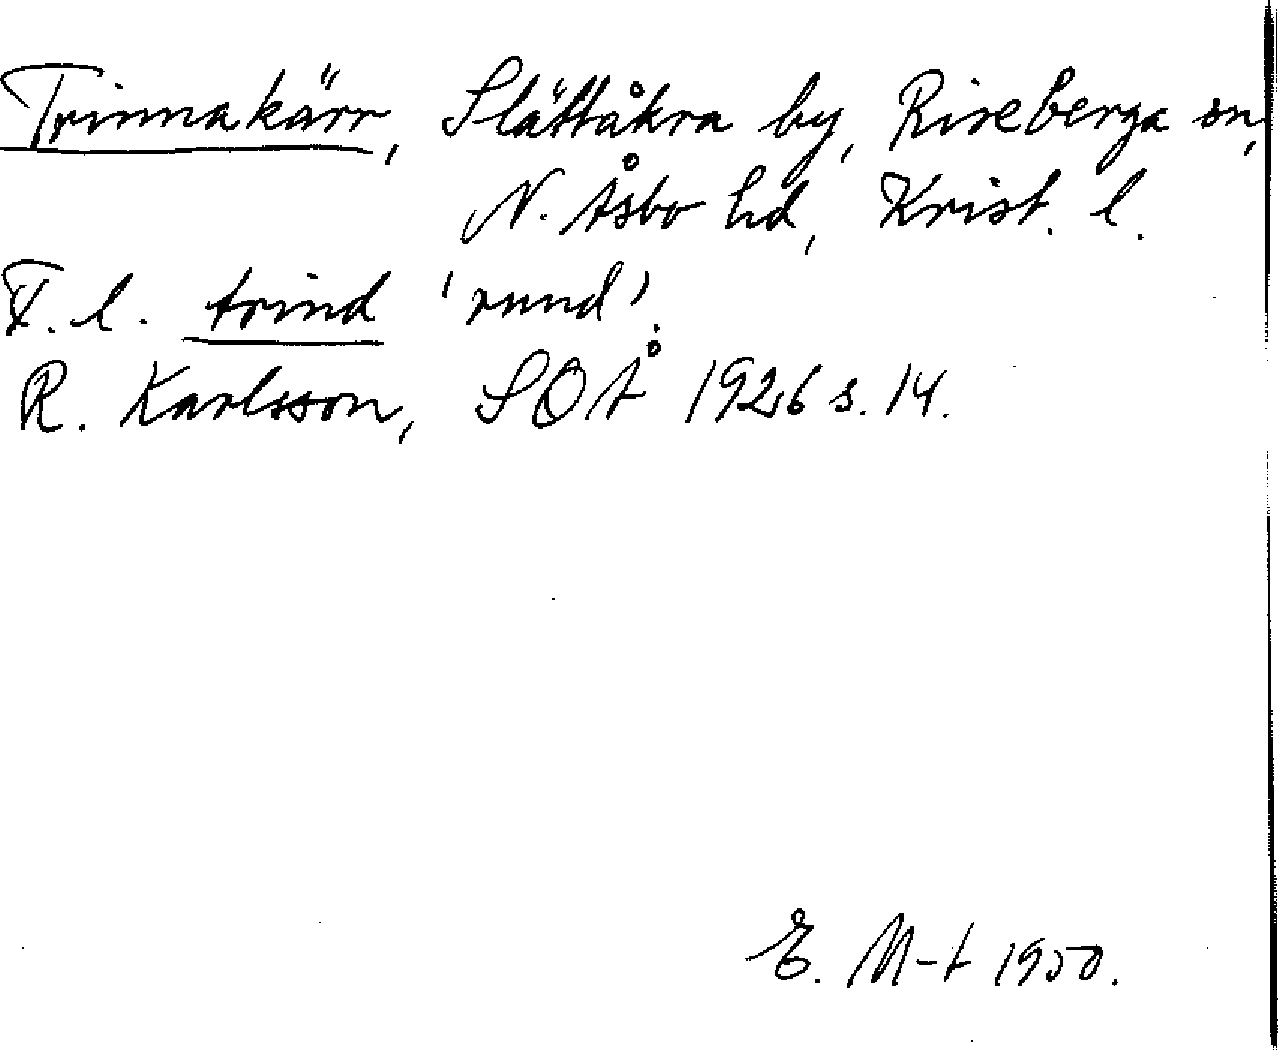 Trinnakärr, Slättåkra by, Riseberga sn,
N. Åsbo hd, Krist. l.
F. l. trind 'rund'.
R. Karlsson, SOÅ 1926 s. 14.
E. M-t 1950.